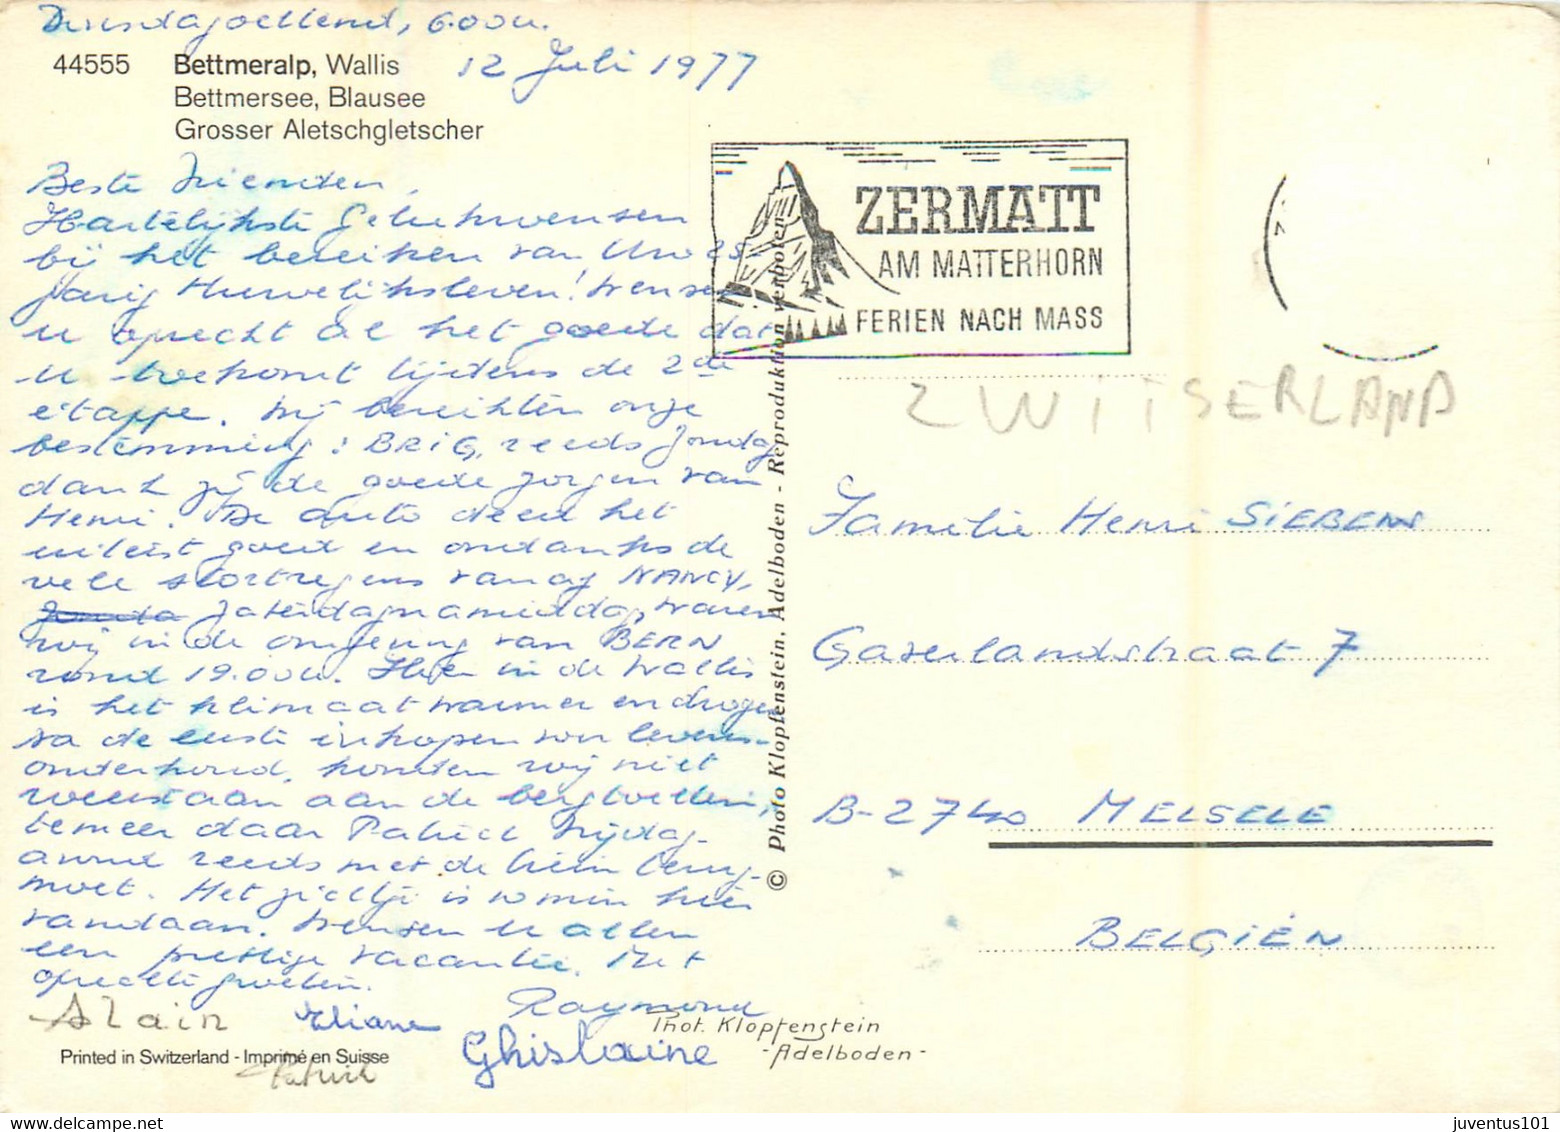 Dinsdagochtend, 6.00u.
12 Juli 1977
44555 Bettmeralp, Wallis
Bettmersee, Blausee
Grosser Aletschgletscher
Beste Vrienden,
Hartelijkste Gelukwensen
bij het bereiken van Uw 25
jarig Huwelijksleven! Wensen
u oprecht al het goede dat
u toekomt tijdens de 2de
etappe. Wij bereikten onze
bestemming: BRIG, reeds Zondag
dank zij de goede zorgen van
Henri. De auto deed het
uiterst goed en ondanks de
vele stortregens vanaf NANCY,
Zonda Zaterdagnamiddag, waren
wij in de omgeving van BERN
rond 19.00u. Hier in de Wallis
is het klimaat warmer en droger
na de eerste inkopen voor levens-
onderhoud, konden wij niet
weerstaan aan de bergtochten,
temeer daar Patrick Vrijdag-
avond reeds met de trein terug-
moet. Het zieltje is 10 min hier
vandaan. Wensen U allen
een prettige vacantie. Met
oprechte groeten.
Raymond
Alain Eliane
Ghislaine
Patrick
Printed in Switzerland - Imprimé en Suisse
Phot. Klopfenstein
-Adelboden-
© Photo Klopfenstein, Adelboden - Reproduktion verboten
ZERMATT
AM MATTERHORN
FERIEN NACH MASS
ZWITSERLAND
Familie Henri SIEBENS
Gaverlandstraat 7
B-2740 MELSELE
BELGIËN
juventus101